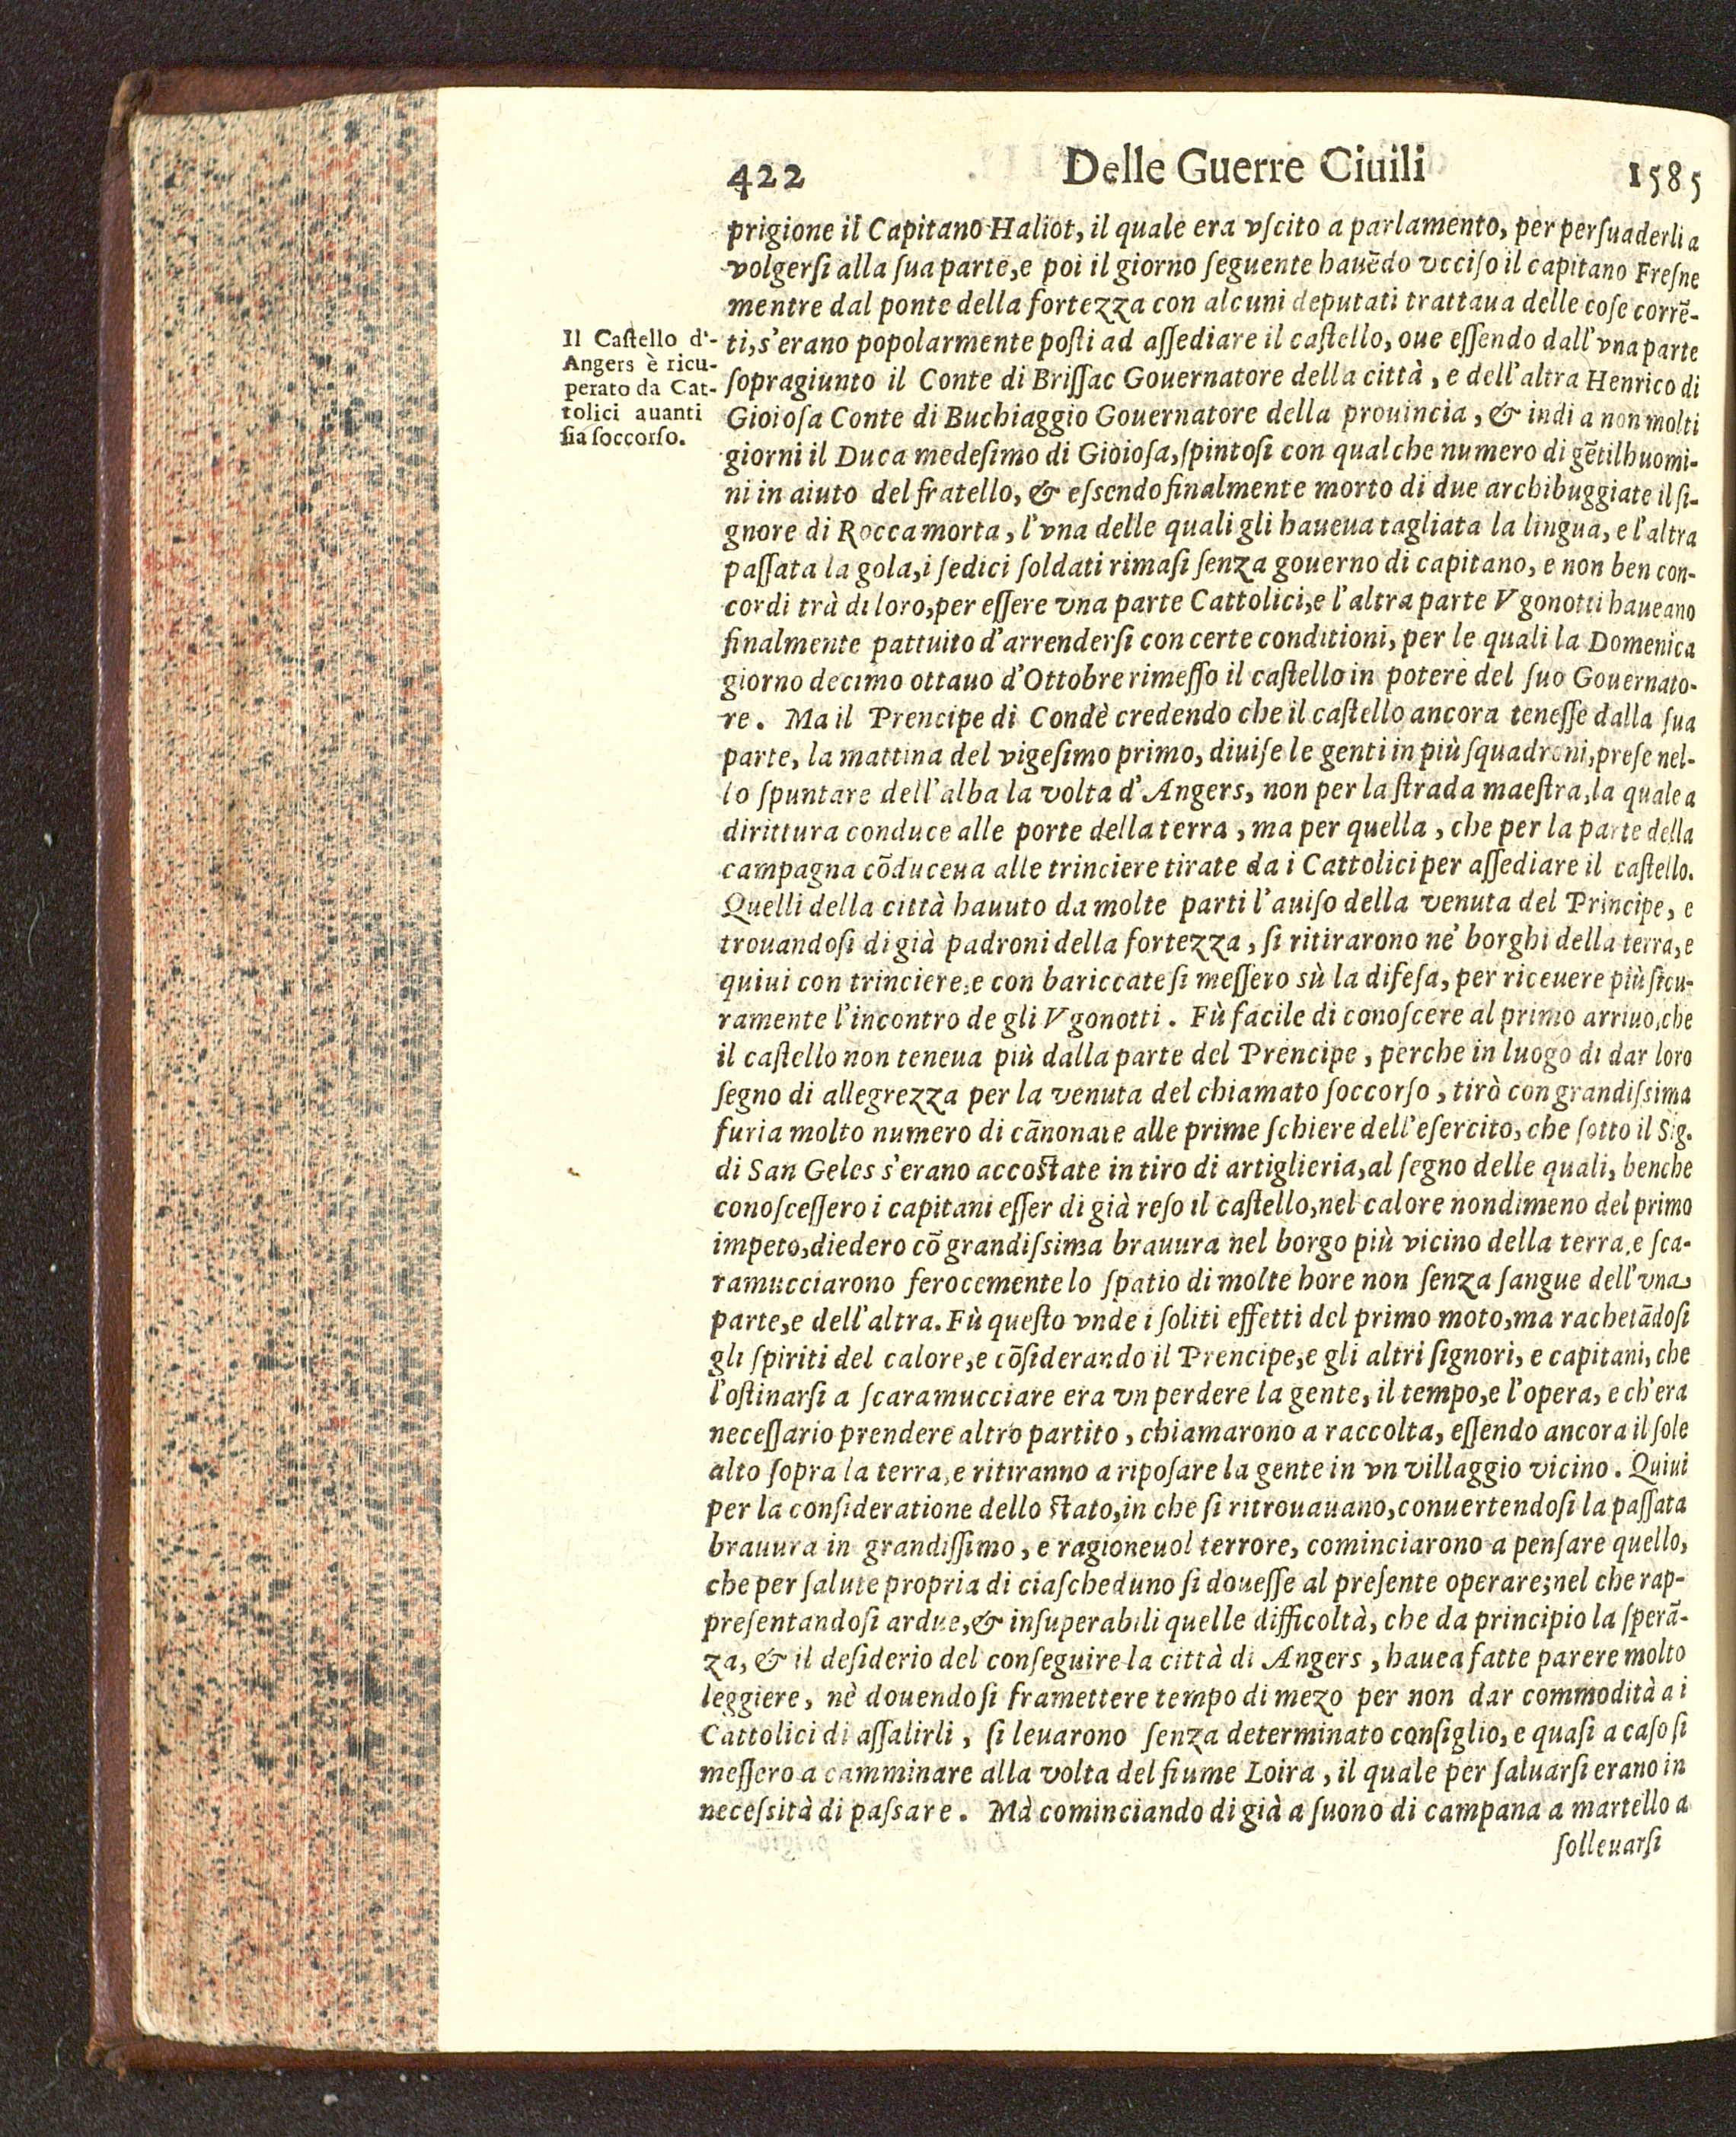 422 Delle Guerre Ciuili 1585
prigione il Capitano Haliot, il quale era vſcito a parlamento, per perſuaderli a
volgerſi alla ſua parte, e poi il giorno ſeguente hauēdo vcciſo il capitano Freſne
mentre dal ponte della fortezza con alcuni deputati trattaua delle coſe corrē-
Il Caſtello d'
Angers è ricu-
perato da Cat-
tolici auanti
ſia ſoccorſo.
ti, s'erano popolarmente poſti ad aſſediare il caſtello, oue eſſendo dall'vna parte
ſopragiunto il Conte di Briſſac Gouernatore della città, e dell'altra Henrico di
Gioioſa Conte di Buchiaggio Gouernatore della prouincia, & indi a non molti
giorni il Duca medeſimo di Gioioſa, ſpintoſi con qualche numero di gētilhuomi-
ni in aiuto del fratello, & eſsendo finalmente morto di due archibuggiate il ſi-
gnore di Roccamorta, l'vna delle quali gli haueua tagliata la lingua, e l'altra
paſſata la gola, i ſedici ſoldati rimaſi ſenza gouerno di capitano, e non ben con-
cordi trà di loro, per eſſere vna parte Cattolici, e l'altra parte Vgonotti haueano
finalmente pattuito d'arrenderſi con certe conditioni, per le quali la Domenica
giorno decimo ottauo d'Ottobre rimeſſo il caſtello in potere del ſuo Gouernato-
re. Ma il Prencipe di Condè credendo che il caſtello ancora teneſſe dalla ſua
parte, la mattina del vigeſimo primo, diuiſe le genti in più ſquadroni, preſe nel-
lo ſpuntare dell'alba la volta d'Angers, non per la ſtrada maeſtra, la quale a
dirittura conduce alle porte della terra, ma per quella, che per la parte della
campagna cōduceua alle trinciere tirate da i Cattolici per aſſediare il caſtello.
Quelli della città hauuto da molte parti l'auiſo della venuta del Principe, e
trouandoſi di già padroni della fortezza, ſi ritirarono ne' borghi della terra, e
quiui con trinciere, e con bariccate ſi meſſero sù la difeſa, per riceuere più ſicu-
ramente l'incontro de gli Vgonotti. Fù facile di conoſcere al primo arriuo, che
il caſtello non teneua più dalla parte del Prencipe, perche in luogo di dar loro
ſegno di allegrezza per la venuta del chiamato ſoccorſo, tirò con grandiſsima
furia molto numero di cānonate alle prime ſchiere dell'eſercito, che ſotto il Sig.
di San Geles s'erano accoſtate in tiro di artiglieria, al ſegno delle quali, benche
conoſceſſero i capitani eſſer di già reſo il caſtello, nel calore nondimeno del primo
impeto, diedero cō grandiſsima brauura nel borgo più vicino della terra, e ſca-
ramucciarono ferocemente lo ſpatio di molte hore non ſenza ſangue dell'vna
parte, e dell'altra. Fù queſto vnde i ſoliti effetti del primo moto, ma rachetādoſi
gli ſpiriti del calore, e cōſiderando il Prencipe, e gli altri ſignori, e capitani, che
l'oſtinarſi a ſcaramucciare era vn perdere la gente, il tempo, e l'opera, e ch'era
neceſſario prendere altro partito, chiamarono a raccolta, eſſendo ancora il ſole
alto ſopra la terra, e ritiranno a ripoſare la gente in vn villaggio vicino. Quiui
per la conſideratione dello ſtato, in che ſi ritrouauano, conuertendoſi la paſſata
brauura in grandiſſimo, e ragioneuol terrore, cominciarono a penſare quello,
che per ſalute propria di ciaſcheduno ſi doueſſe al preſente operare; nel che rap-
preſentandoſi ardue, & inſuperabili quelle difficoltà, che da principio la ſperā-
za, & il deſiderio del conſeguire la città di Angers, hauea fatte parere molto
leggiere, nè douendoſi framettere tempo di mezo per non dar commodità a i
Cattolici di aſſalirli, ſi leuarono ſenza determinato conſiglio, e quaſi a caſo ſi
meſſero a camminare alla volta del fiume Loira, il quale per ſaluarſi erano in
neceſsità di paſsare. Mà cominciando di già a ſuono di campana a martello a
ſolleuarſi